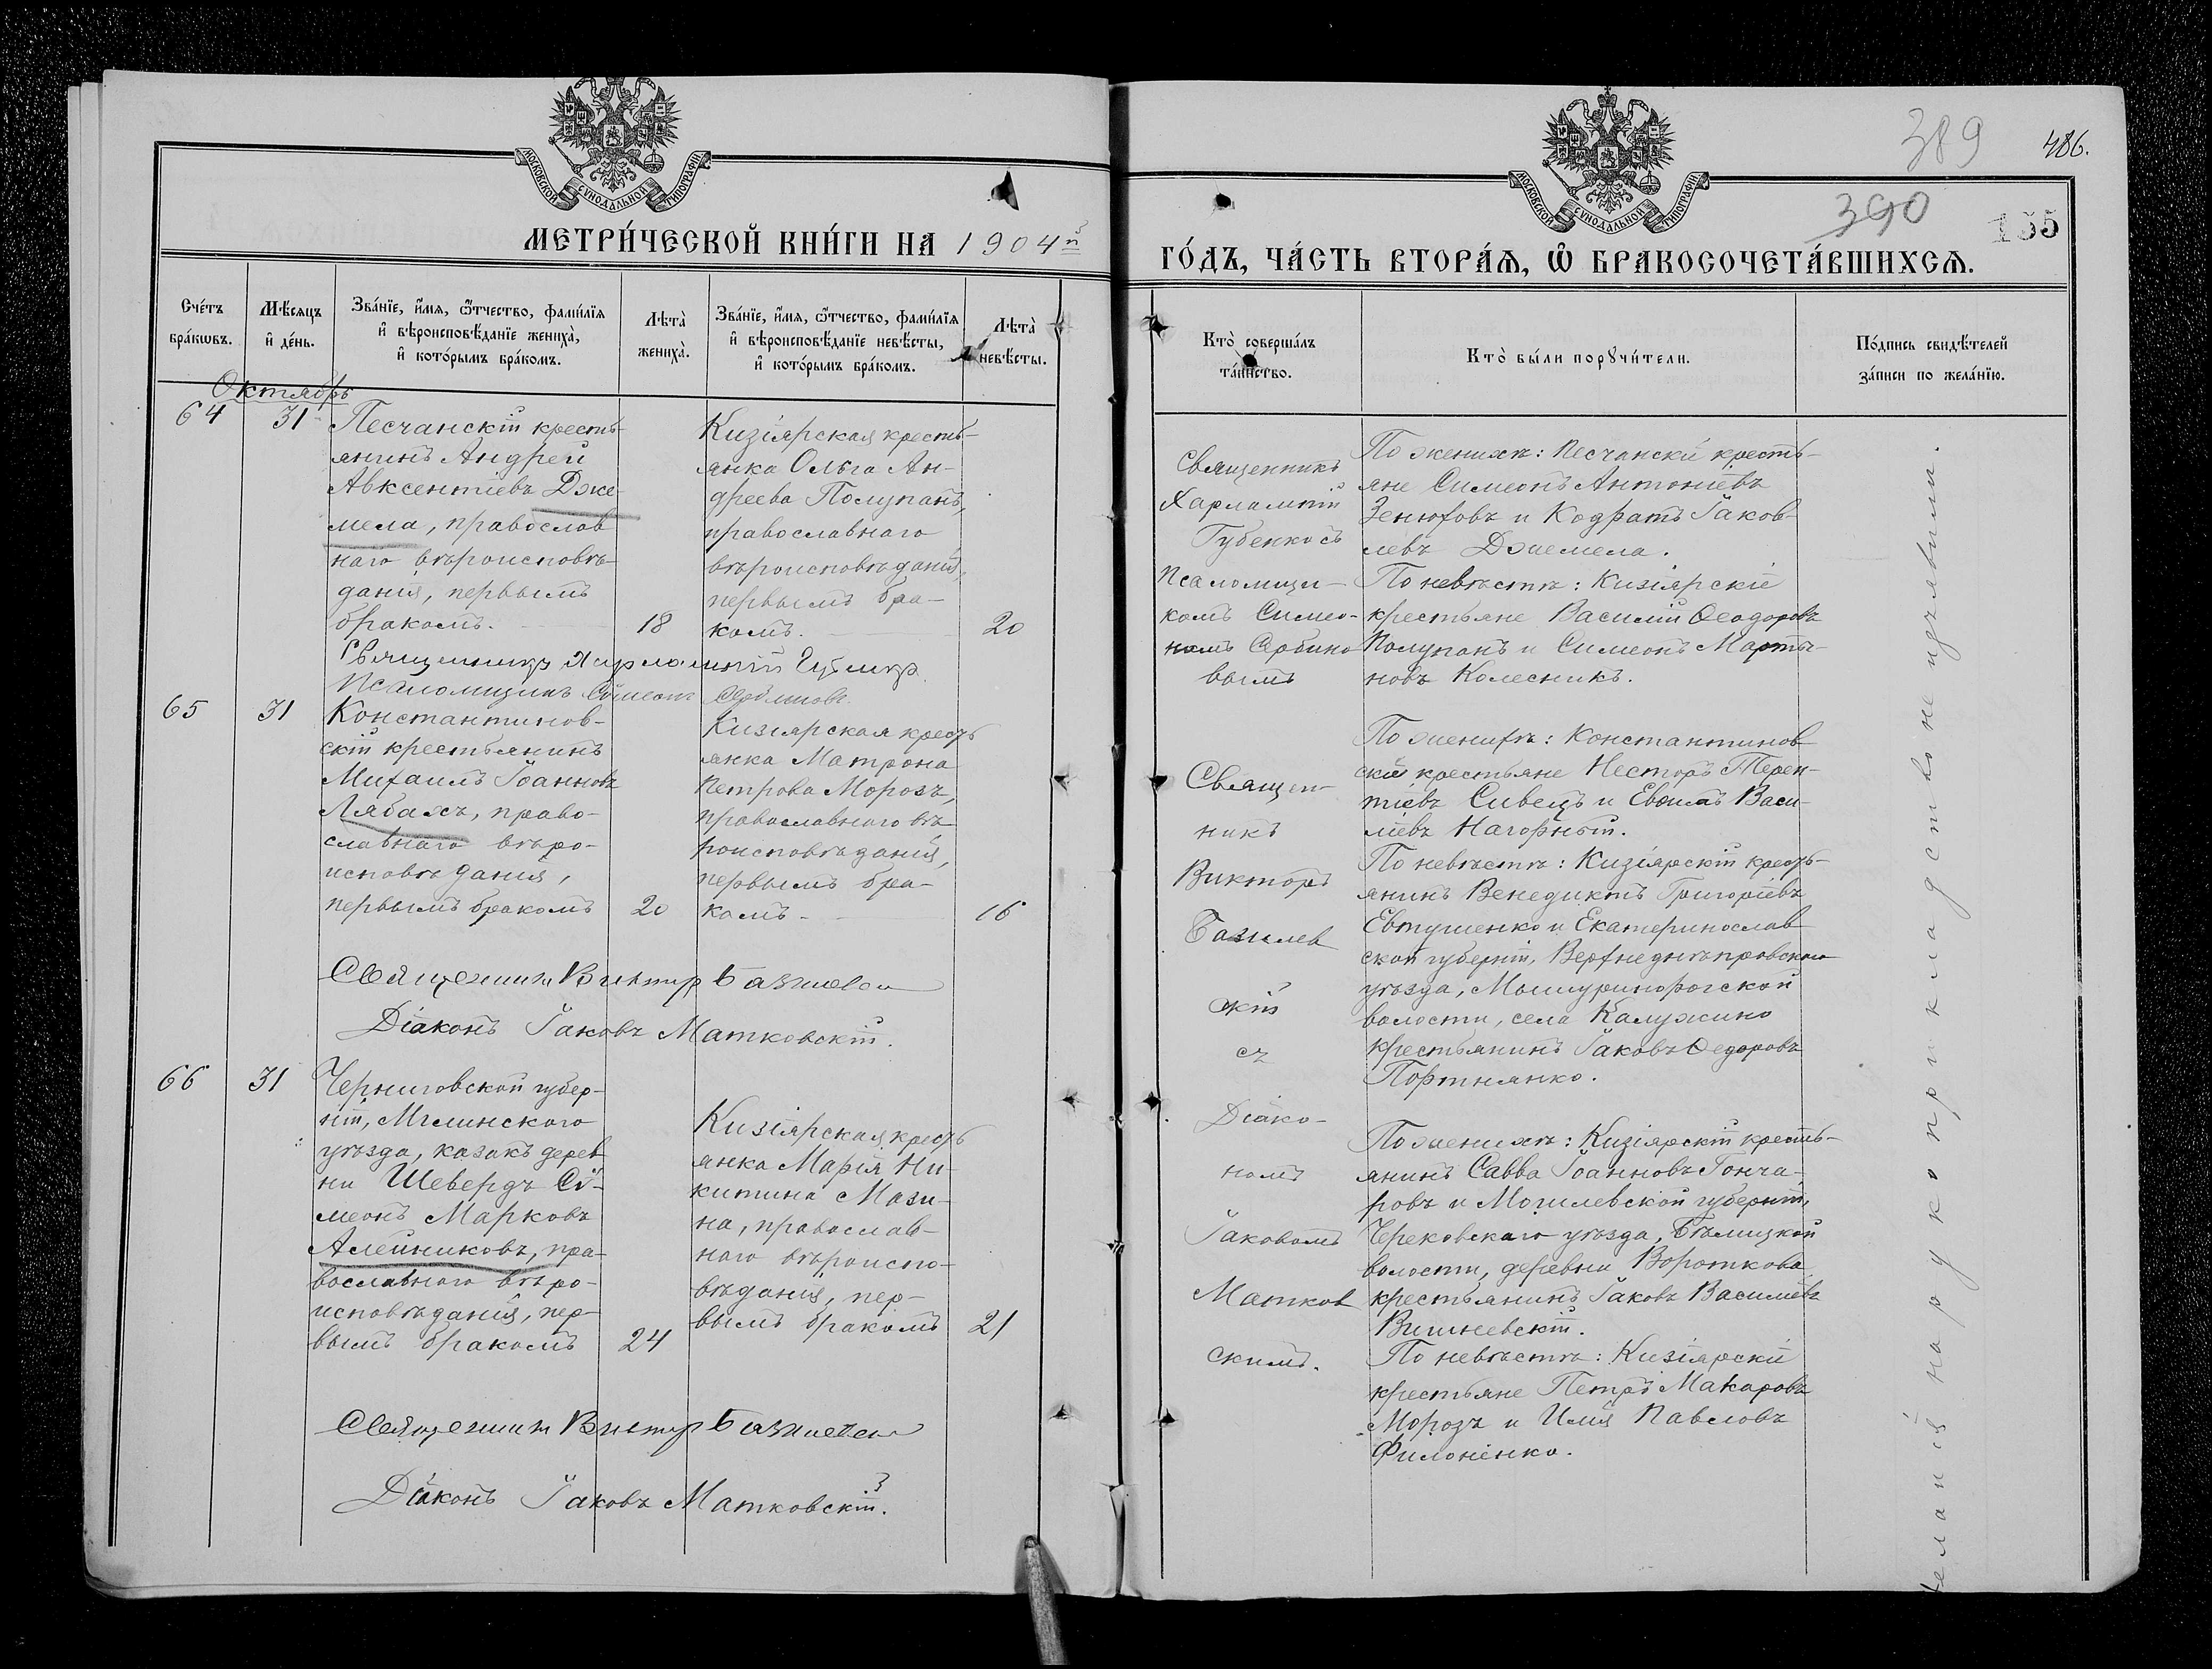 МОСКОВСКОЙ СУНОДАЛЬНОЙ ТИПОГРАФІИ
МЕТРИ́ЧЕСКОЙ КНИ́ГИ НА 1904й
Сче́тъ бра́кѡвъ.
Мѣ́сяцъ и де́нь.
Зва́нїе, и́мя, ѻ҆́тчество, фами́лїя
и вѣроисповѣ́данїе жениха̀,
и кото́рымъ бра́комъ.
Лѣта̀ жениха̀.
Зва́нїе, и́мя, ѻ҆́тчество, фами́лїя
и вѣроисповѣ́данїе невѣ́сты,
и кото́рымъ бра́комъ.
Лѣта̀ невѣ́сты.
Октябрь
64
31
Песчанскій кресть-
янинъ Андрей
Авксентіевъ Дже-
мела, православ
наго вѣроисповѣ-
данія, первымъ
бракомъ.
18
Кизіярская кресть-
янка Ольга Ан-
дреева Полупанъ,
православнаго
вѣроисповѣданія,
первымъ бра-
комъ.
20
Священникъ Харлампій Губенко
Псаломщикъ Симеонъ Сербиновъ
65
31
Константинов-
скій крестьянинъ
Михаилъ Іоанновъ
Лябахъ, право-
славнаго вѣро-
исповѣданія,
первымъ бракомъ
20
Кизіярская кресть
янка Матрона
Петрова Морозъ,
православнаго вѣ
роисповѣданія,
первымъ бра-
комъ.
16
Священникъ Викторъ Базилев
Діаконъ Іаковъ Матковскій.
66
31
Черниговской губер-
ніи, Мглинскаго
уѣзда, казакъ дерев
ни Шевердъ Сі-
меонъ Марковъ
Алейниковъ, пра-
вославнаго вѣро-
исповѣданія, пер-
вымъ бракомъ
24
Кизіярская кресть
янка Марія Ни-
китина Мази-
на, православ-
наго вѣроиспо-
вѣданія, пер-
вымъ бракомъ
21
Священникъ Викторъ Базилев
Діаконъ Іаковъ Матковскій.
389
486.
390
155
МОСКОВСКОЙ СУНОДАЛЬНОЙ ТИПОГРАФІИ
ГО́ДЪ, ЧА́СТЬ ВТОРА́Ѧ, Ѡ҆ БРАКОСОЧЕТА́ВШИХСѦ.
Кто̀ соверша́лъ
та́инство.
Кто̀ бы́ли порꙋчи́тели.
По́дпись свидѣ́телей
за́писи по жела́нїю.
Священникъ
Харлампій
Губенко съ
Псаломщи-
комъ Симео-
номъ Сербино
вымъ
По женихѣ: Песчанскіе кресть-
яне Симеонъ Антоніевъ
Зенюховъ и Кодратъ Іаков-
левъ Джемела.
По невѣстѣ: Кизіярскіе
крестьяне Василій Ѳеодоровъ
Полупанъ и Симеонъ Марты-
новъ Колесникъ.
Священ-
никъ
Викторъ
Базилев
скій
съ
Діако-
номъ
Іаковомъ
Матков
скимъ.
По женихѣ: Константинов
скіе крестьяне Несторъ Терен-
тіевъ Сивецъ и Евѳимъ Васи-
ліевъ Нагорный.
По невѣстѣ: Кизіярскій кресть-
янинъ Венедиктъ Григоріевъ
Евтушенко и Екатеринослав
ской губерніи, Верхнеднѣпровскаго
уѣзда, Мишуринорогской
волости, села Калужино
крестьянинъ Іаковъ Ѳедоровъ
Портнянко.
По женихѣ: Кизіярскій кресть-
янинъ Савва Іоанновъ Гонча-
ровъ и Могилевской губерніи,
Чериковскаго уѣзда, Бѣлицкой
волости, деревни Вороткова
крестьянинъ Іаковъ Василіевъ
Вишневскій.
По невѣстѣ: Кизіярскіе
крестьяне Петръ Макаровъ
Морозъ и Илія Павловъ
Филоненко.
желанія на рукоприкладство не изъявили.